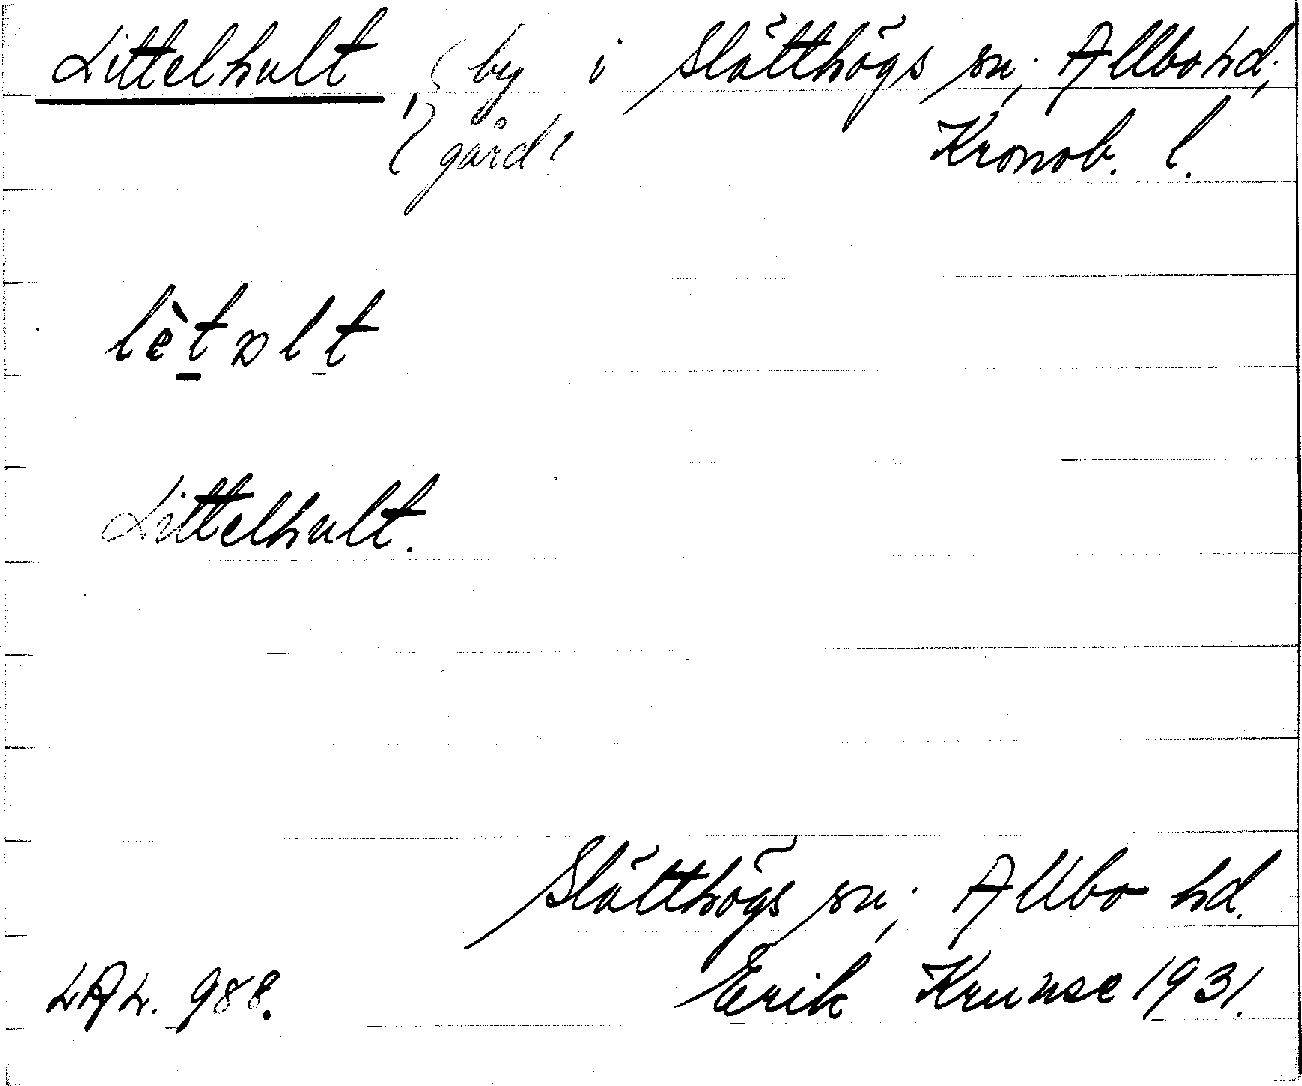 Littelhult, (by i Slätthögs sn; Allbo hd;
(gård? Kronob. l.
lètɷlt
Littelhult.
Slätthögs sn; Allbo hd.
LAL. 988. Erik Krunse 1931.